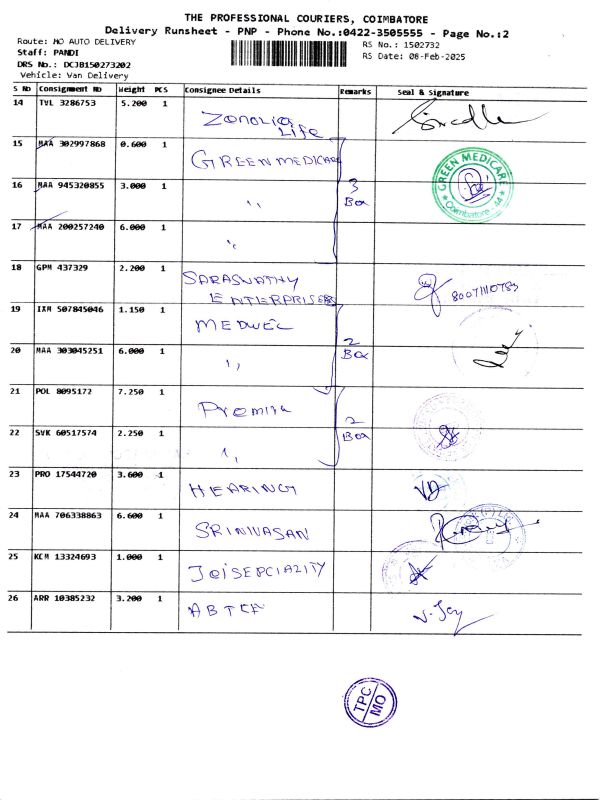 THE PROFESSIONAL COURIERS, COIMBATORE
Delivery Runsheet - PNP - Phone No.:0422-3505555 - Page No.:2
Route: MO AUTO DELIVERY
RS No.: 1502732
Staff: PANDI
RS Date: 08-Feb-2025
DRS No.: DCJB150273202
Vehicle: Van Delivery
S No Consignment No Weight PCS Consignee Details Remarks Seal & Signature
14 TVL 3286753 5.200 1
LIFE
15 MAA 302997868 0.600 1 GREEN MEDICARE
16 MAA 945320855 3.000 1 ,, 3 Box
GREEN MEDICARE
Coimbatore - 44
17 MAA 200257240 6.000 1 ,,
18 GPM 437329 2.200 1 SARASWATHY
ENTERPRISES
19 IXM 507845046 1.150 1 MEDWEL
20 MAA 303045251 6.000 1 ,, 2 Box
21 POL 8095172 7.250 1 Premira
22 SVK 60517574 2.250 1 ,, 2 Box
23 PRO 17544720 3.600 1 HEARING
24 MAA 706338863 6.600 1 SRINIVASAN
25 KCM 13324693 1.000 1
26 ARR 10385232 3.200 1 V. Joy
TPC
MO